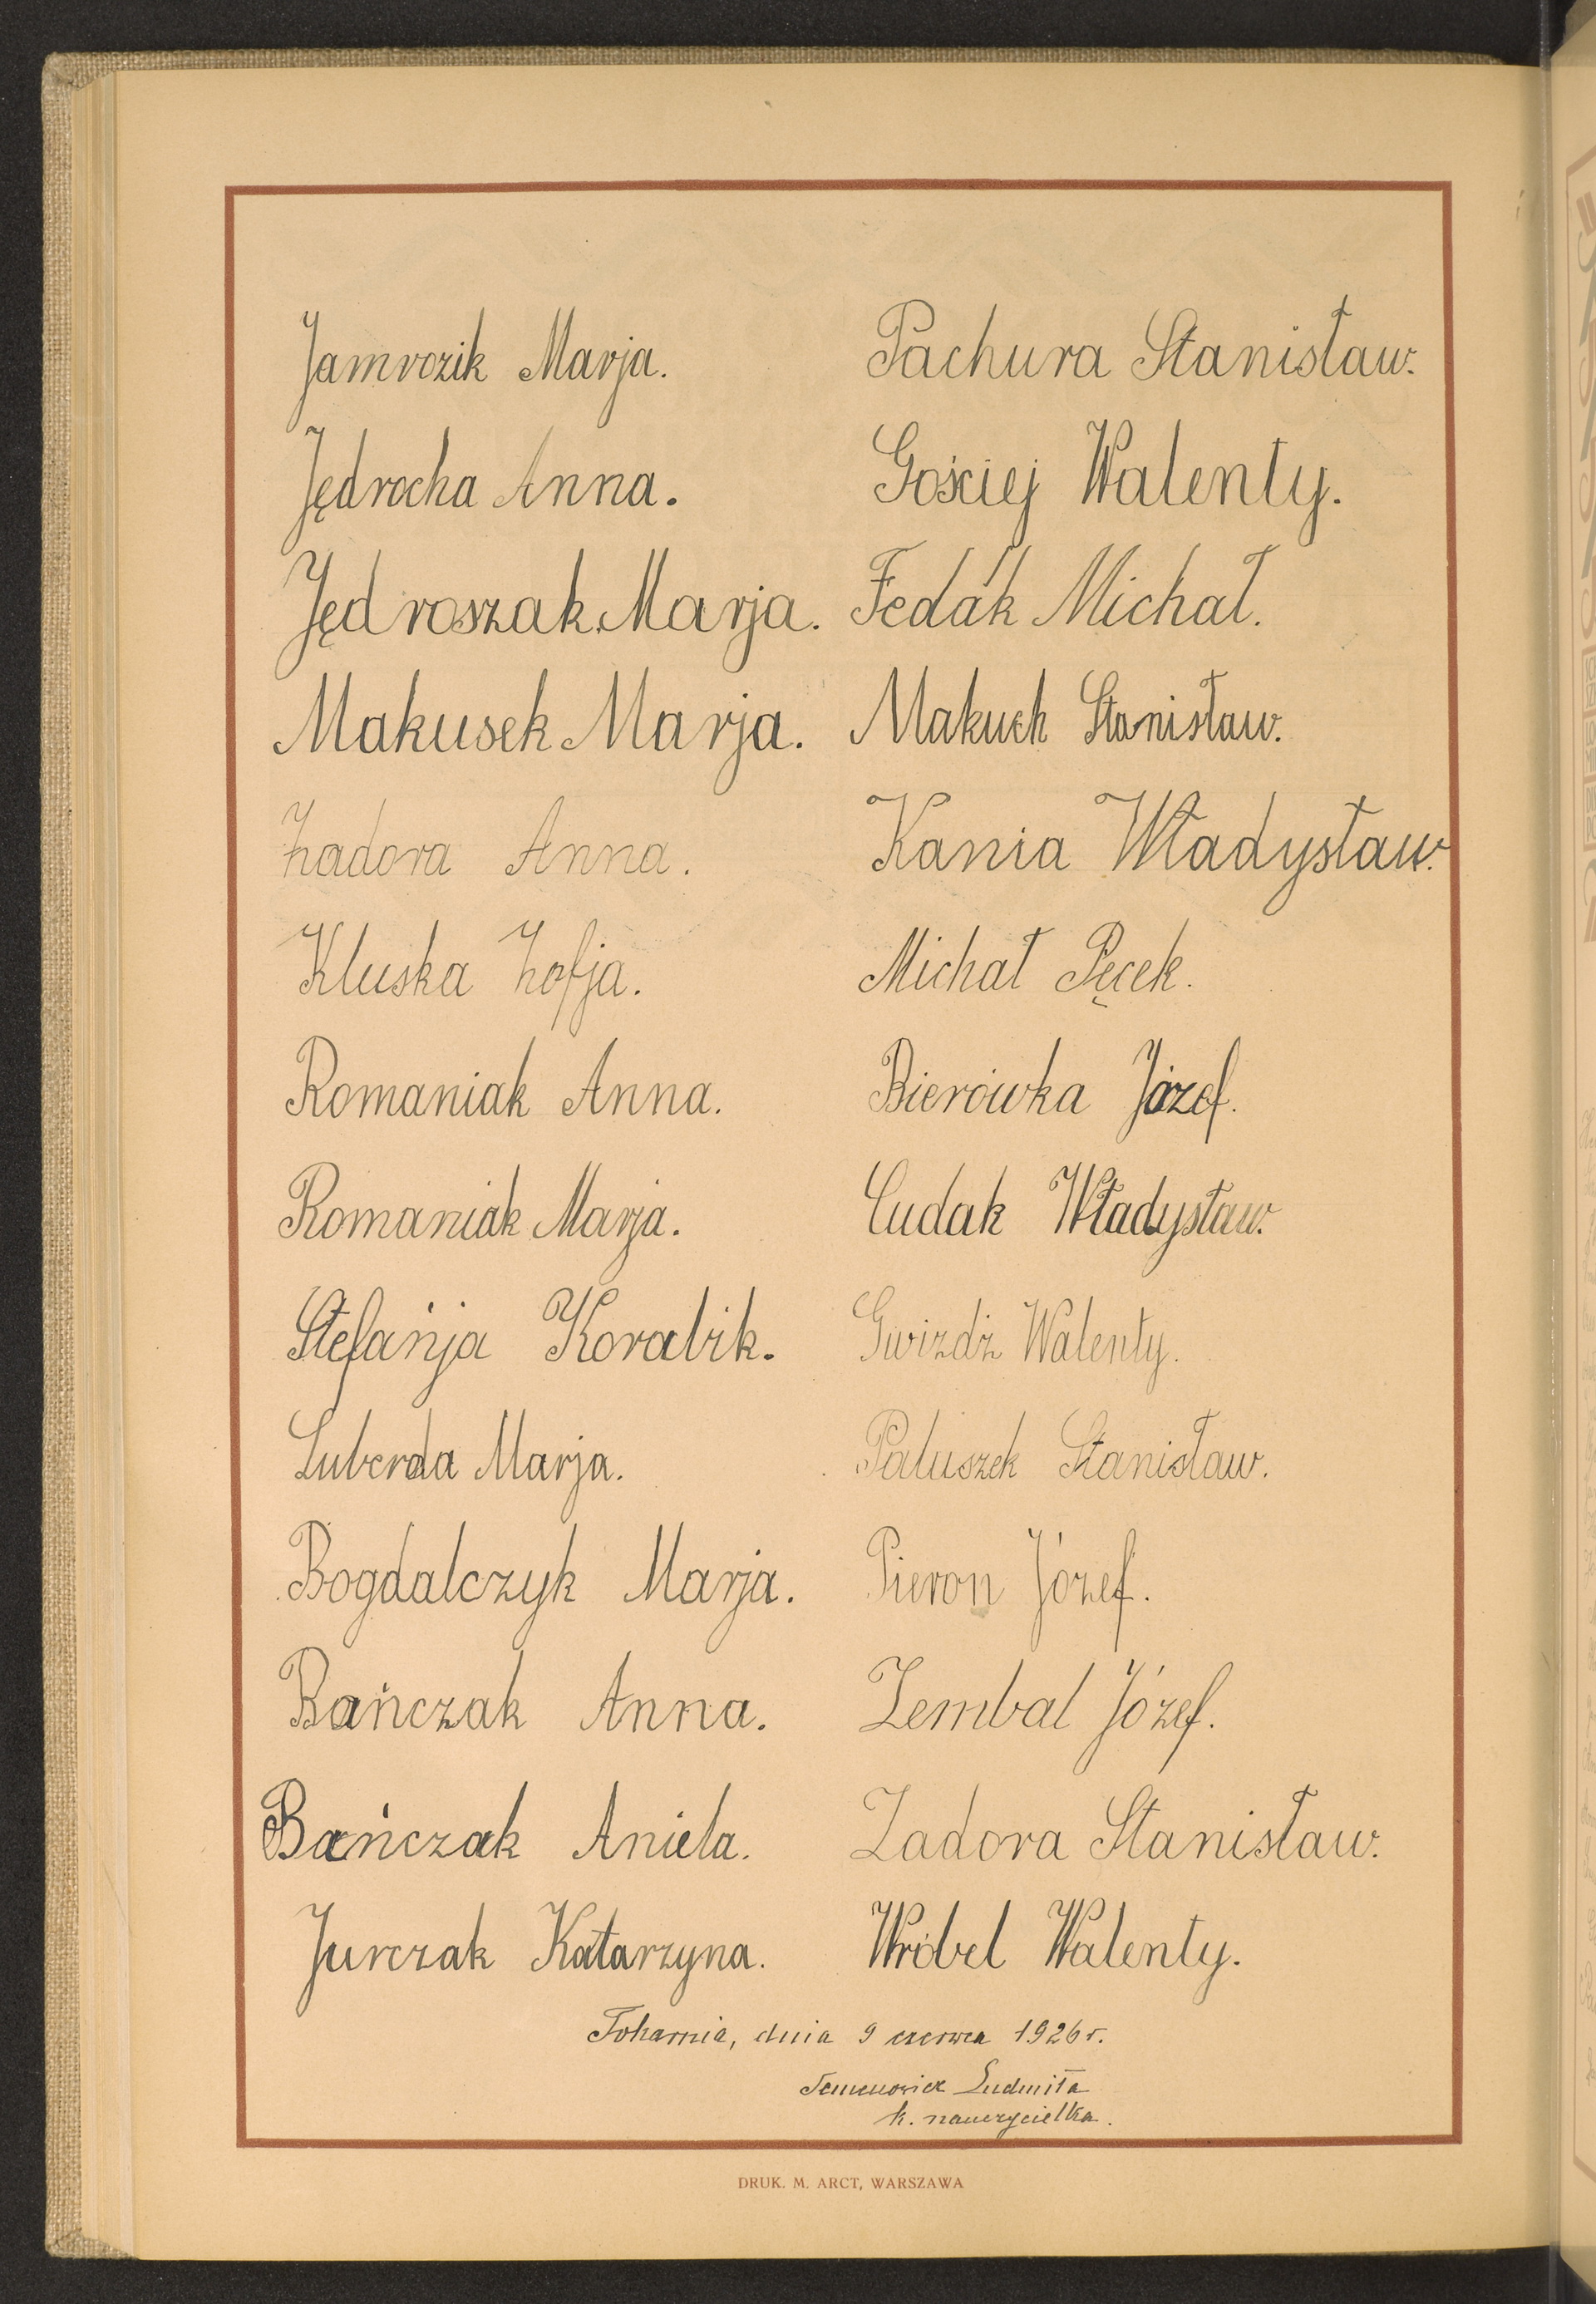 Jamrozik Marja.
Jędrocha Anna.
Jędroszak Marja.
Makusek Marja.
Zadora Anna.
Kluska Zofja.
Romaniak Anna.
Romaniak Marja.
Stefańja Koralik.
Luberda Marja.
Bogdalczyk Marja.
Bańczak Anna.
Bańczak Aniela.
Jurczak Katarzyna.
Pachura Stanisław.
Gościej Walenty.
Fedák Michał.
Makuch Stanisław.
Kania Władysław.
Michał Pęcek.
Bierówka Józef.
Cudak Władysław.
Gwizdż Walenty.
Paluszek Stanisław.
Pieron Józef.
Zembal Józef.
Zadora Stanisław.
Wróbel Walenty.
Tokarnia, dnia 9 czerwca 1926 r.
Ludmiła
k. nauczycielka.
DRUK. M. ARCT, WARSZAWA